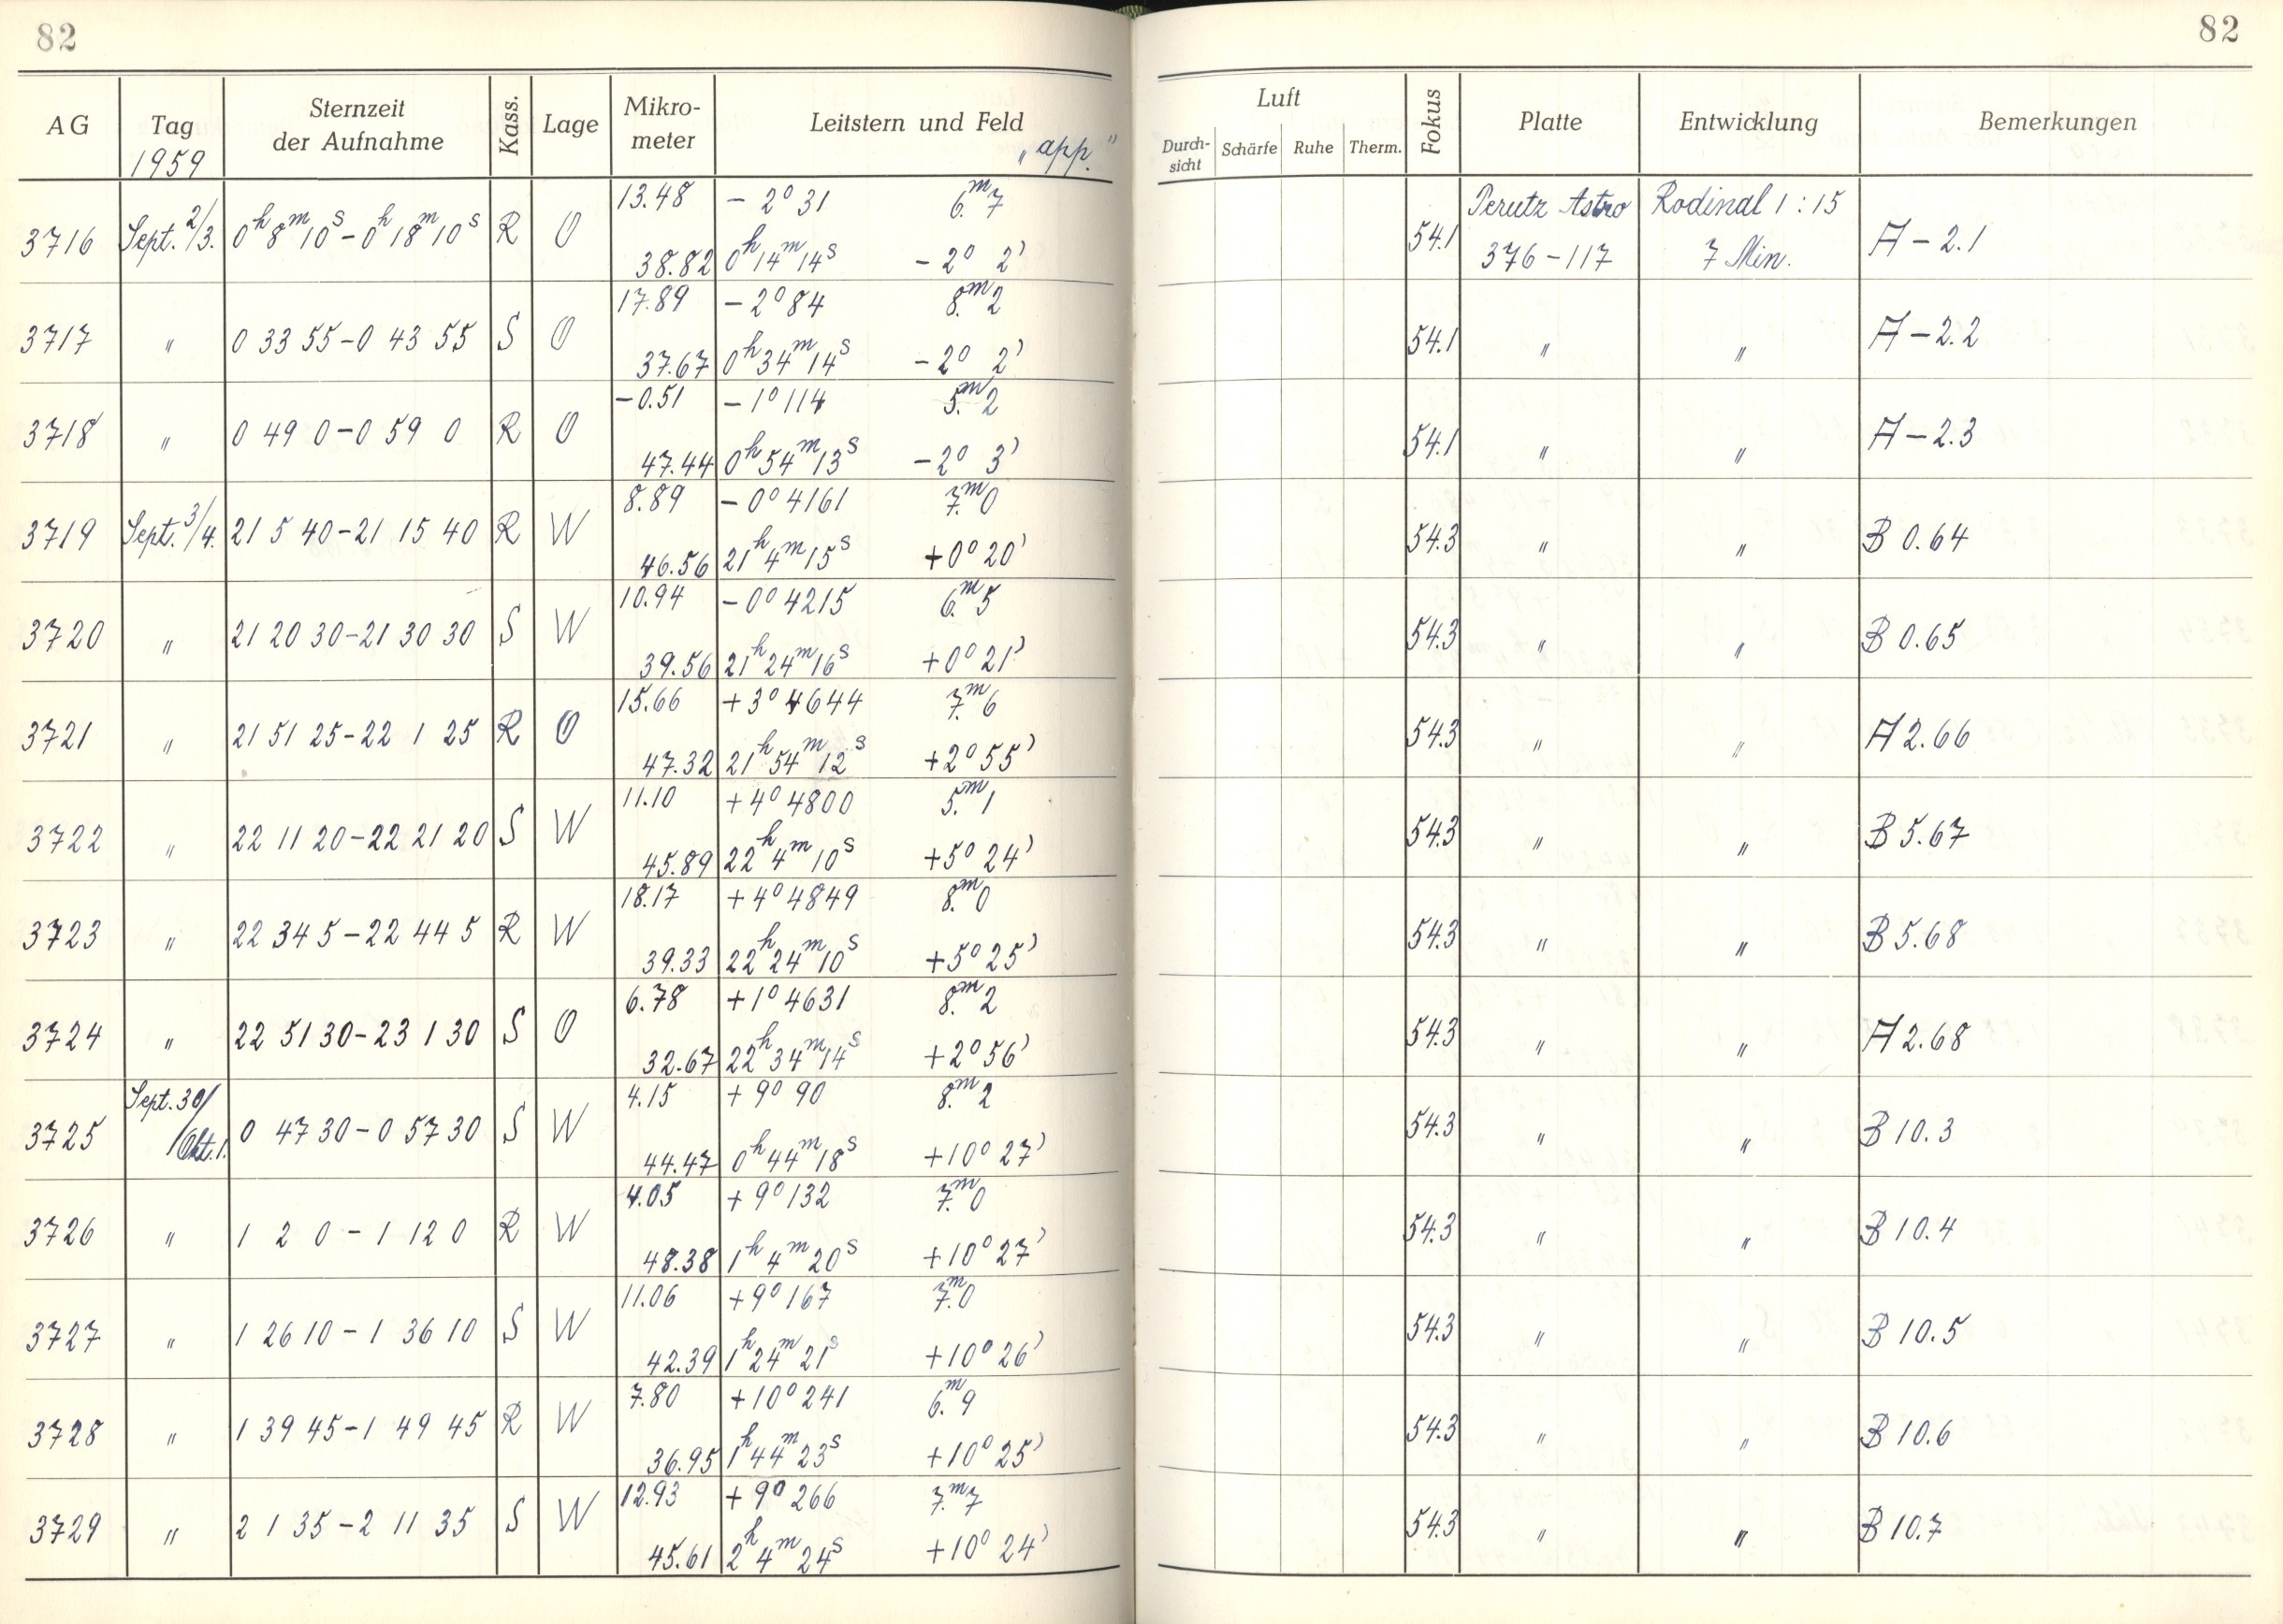 82
82
AG Tag 1959 Sternzeit der Aufnahme Kass. Lage Mikro-meter Leitstern und Feld „app." Luft Durch-sicht Schärfe Ruhe Therm. Fokus Platte Entwicklung Bemerkungen
13.48 – 2° 31 6.ᵐ7 Perutz Astro Rodinal 1:15
3716 Sept. 2/3. 0ʰ 8ᵐ 10ˢ – 0ʰ 18ᵐ 10ˢ R O 54.1 A – 2.1
38.82 0ʰ 14ᵐ 14ˢ – 2° 2' 376 – 117 7 Min.
17.89 – 2° 84 8.ᵐ2
3717 " 0 33 55 – 0 43 55 S O 54.1 " " A – 2.2
37.67 0ʰ 34ᵐ 14ˢ – 2° 2'
– 0.51 – 1° 114 5.ᵐ2
3718 " 0 49 0 – 0 59 0 R O 54.1 " " A – 2.3
47.44 0ʰ 54ᵐ 13ˢ – 2° 3'
8.89 – 0° 4161 7.ᵐ0
3719 Sept. 3/4. 21 5 40 – 21 15 40 R W 54.3 " " B 0.64
46.56 21ʰ 4ᵐ 15ˢ + 0° 20'
10.94 – 0° 4215 6.ᵐ5
3720 " 21 20 30 – 21 30 30 S W 54.3 " " B 0.65
39.56 21ʰ 24ᵐ 16ˢ + 0° 21'
15.66 + 3° 4644 7.ᵐ6
3721 " 21 51 25 – 22 1 25 R O 54.3 " " A 2.66
47.32 21ʰ 54ᵐ 12ˢ + 2° 55'
11.10 + 4° 4800 5.ᵐ1
3722 " 22 11 20 – 22 21 20 S W 54.3 " " B 5.67
45.89 22ʰ 4ᵐ 10ˢ + 5° 24'
18.17 + 4° 4849 8.ᵐ0
3723 " 22 34 5 – 22 44 5 R W 54.3 " " B 5.68
39.33 22ʰ 24ᵐ 10ˢ + 5° 25'
6.78 + 1° 4631 8.ᵐ2
3724 " 22 51 30 – 23 1 30 S O 54.3 " " A 2.68
32.67 22ʰ 34ᵐ 14ˢ + 2° 56'
4.15 + 9° 90 8.ᵐ2
3725 Sept. 30/Okt. 1. 0 47 30 – 0 57 30 S W 54.3 " " B 10.3
44.47 0ʰ 44ᵐ 18ˢ + 10° 27'
4.05 + 9° 132 7.ᵐ0
3726 " 1 2 0 – 1 12 0 R W 54.3 " " B 10.4
48.38 1ʰ 4ᵐ 20ˢ + 10° 27'
11.06 + 9° 167 7.ᵐ0
3727 " 1 26 10 – 1 36 10 S W 54.3 " " B 10.5
42.39 1ʰ 24ᵐ 21ˢ + 10° 26'
7.80 + 10° 241 6.ᵐ9
3728 " 1 39 45 – 1 49 45 R W 54.3 " " B 10.6
36.95 1ʰ 44ᵐ 23ˢ + 10° 25'
12.93 + 9° 266 7.ᵐ7
3729 " 2 1 35 – 2 11 35 S W 54.3 " " B 10.7
45.61 2ʰ 4ᵐ 24ˢ + 10° 24'